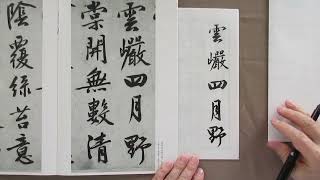 雲巖四月野
棠開無數清
陰覆綠苔意
雲巖四月野